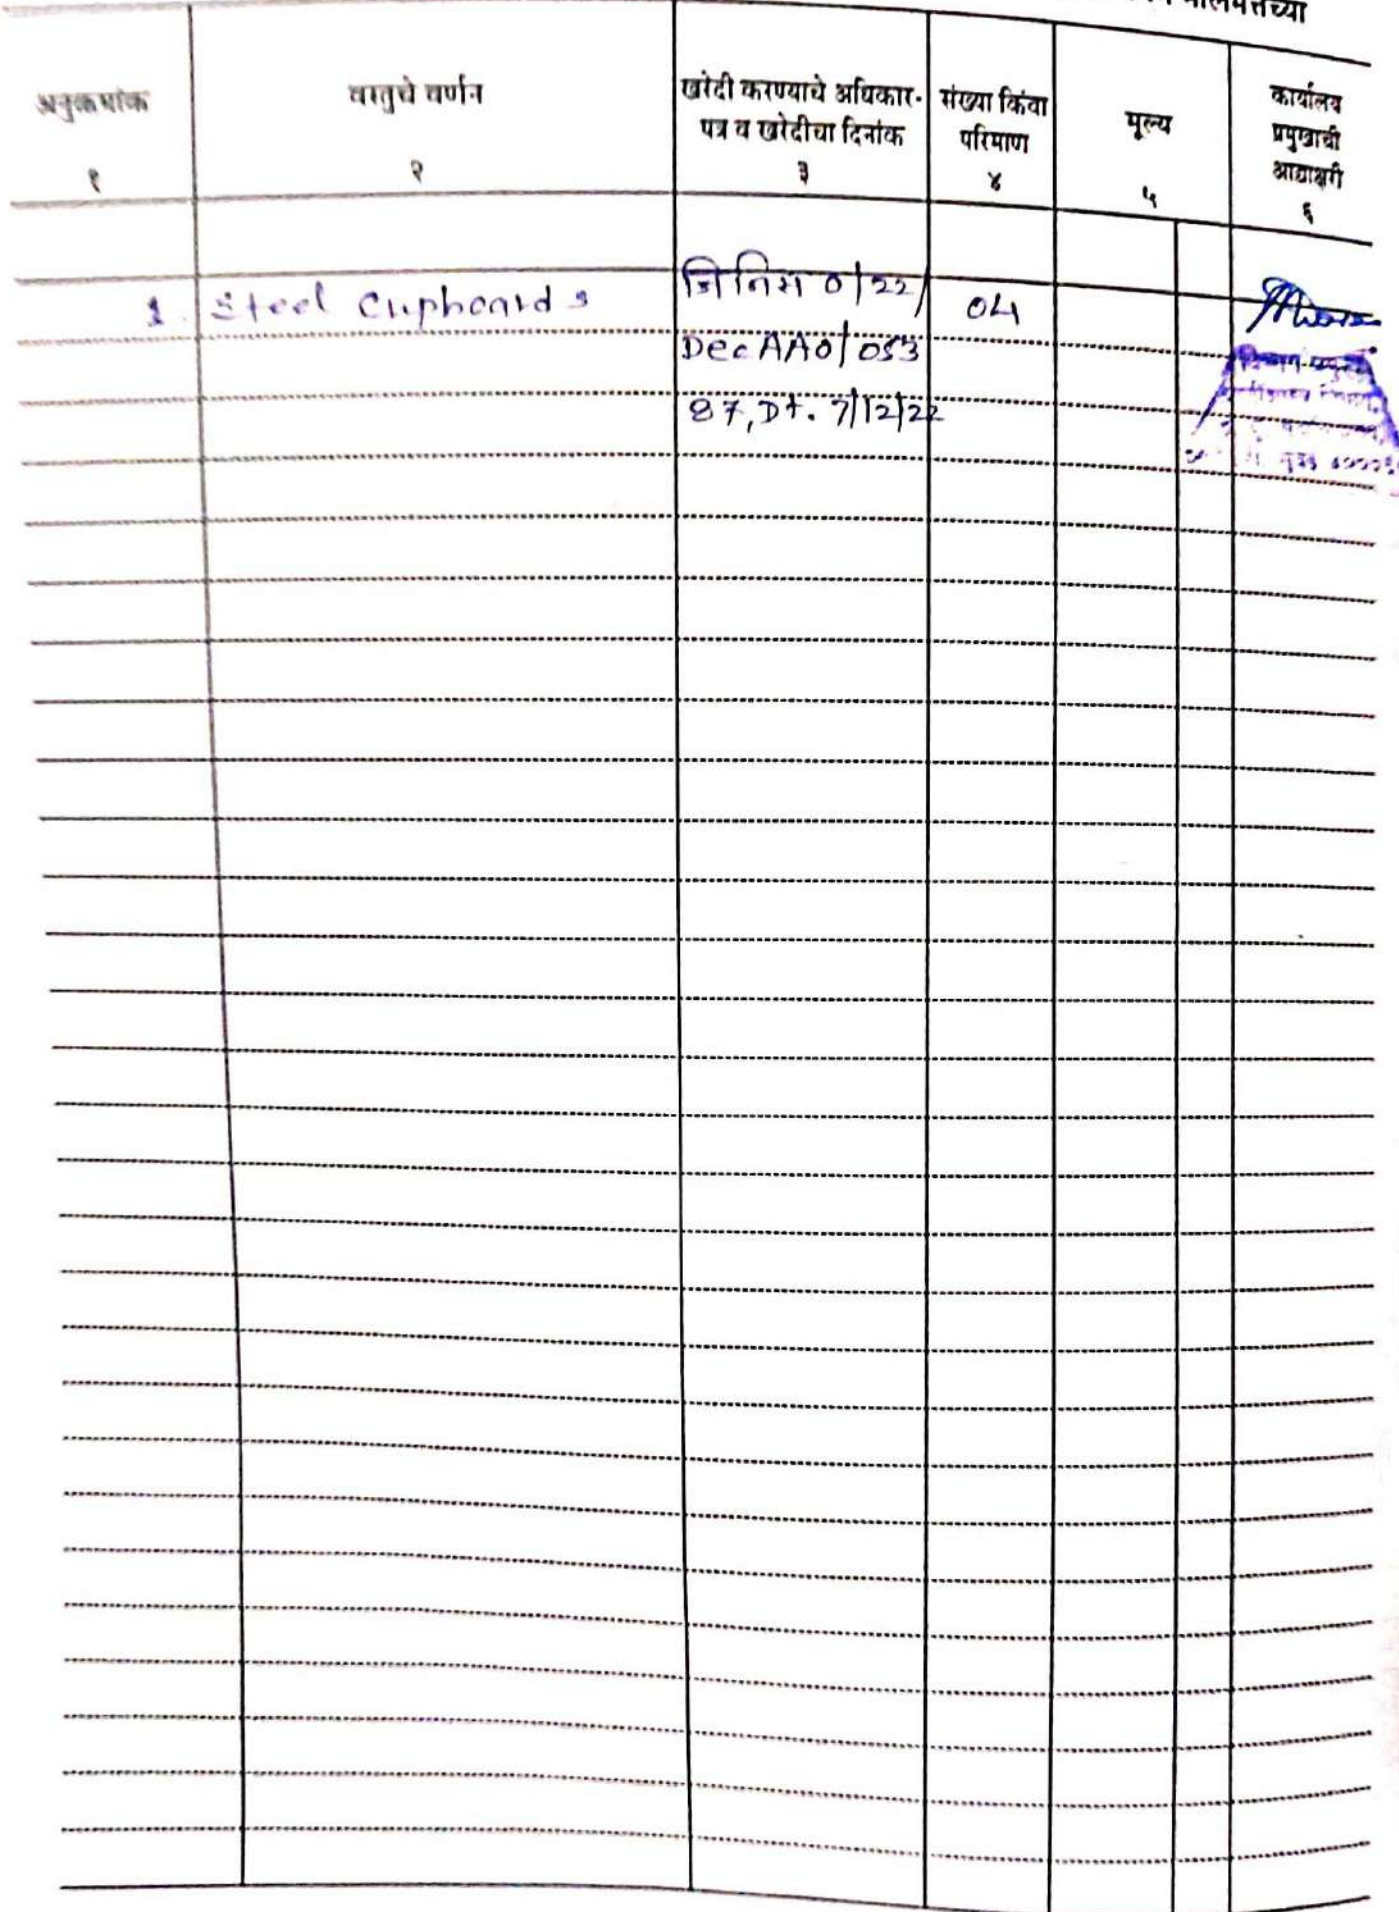 मालमत्तेच्या
अनुक्रमांक
१
वस्तुचे वर्णन
२
खरेदी करण्याचे अधिकार-
पत्र व खरेदीचा दिनांक
३
संख्या किंवा
परिमाण
४
मूल्य
५
कार्यालय
प्रमुखाची
आद्याक्षरी
६
1. Steel Cupboards
जिनिस 0/22/
Dec AAO/053
87, Dt. 7/12/22
04